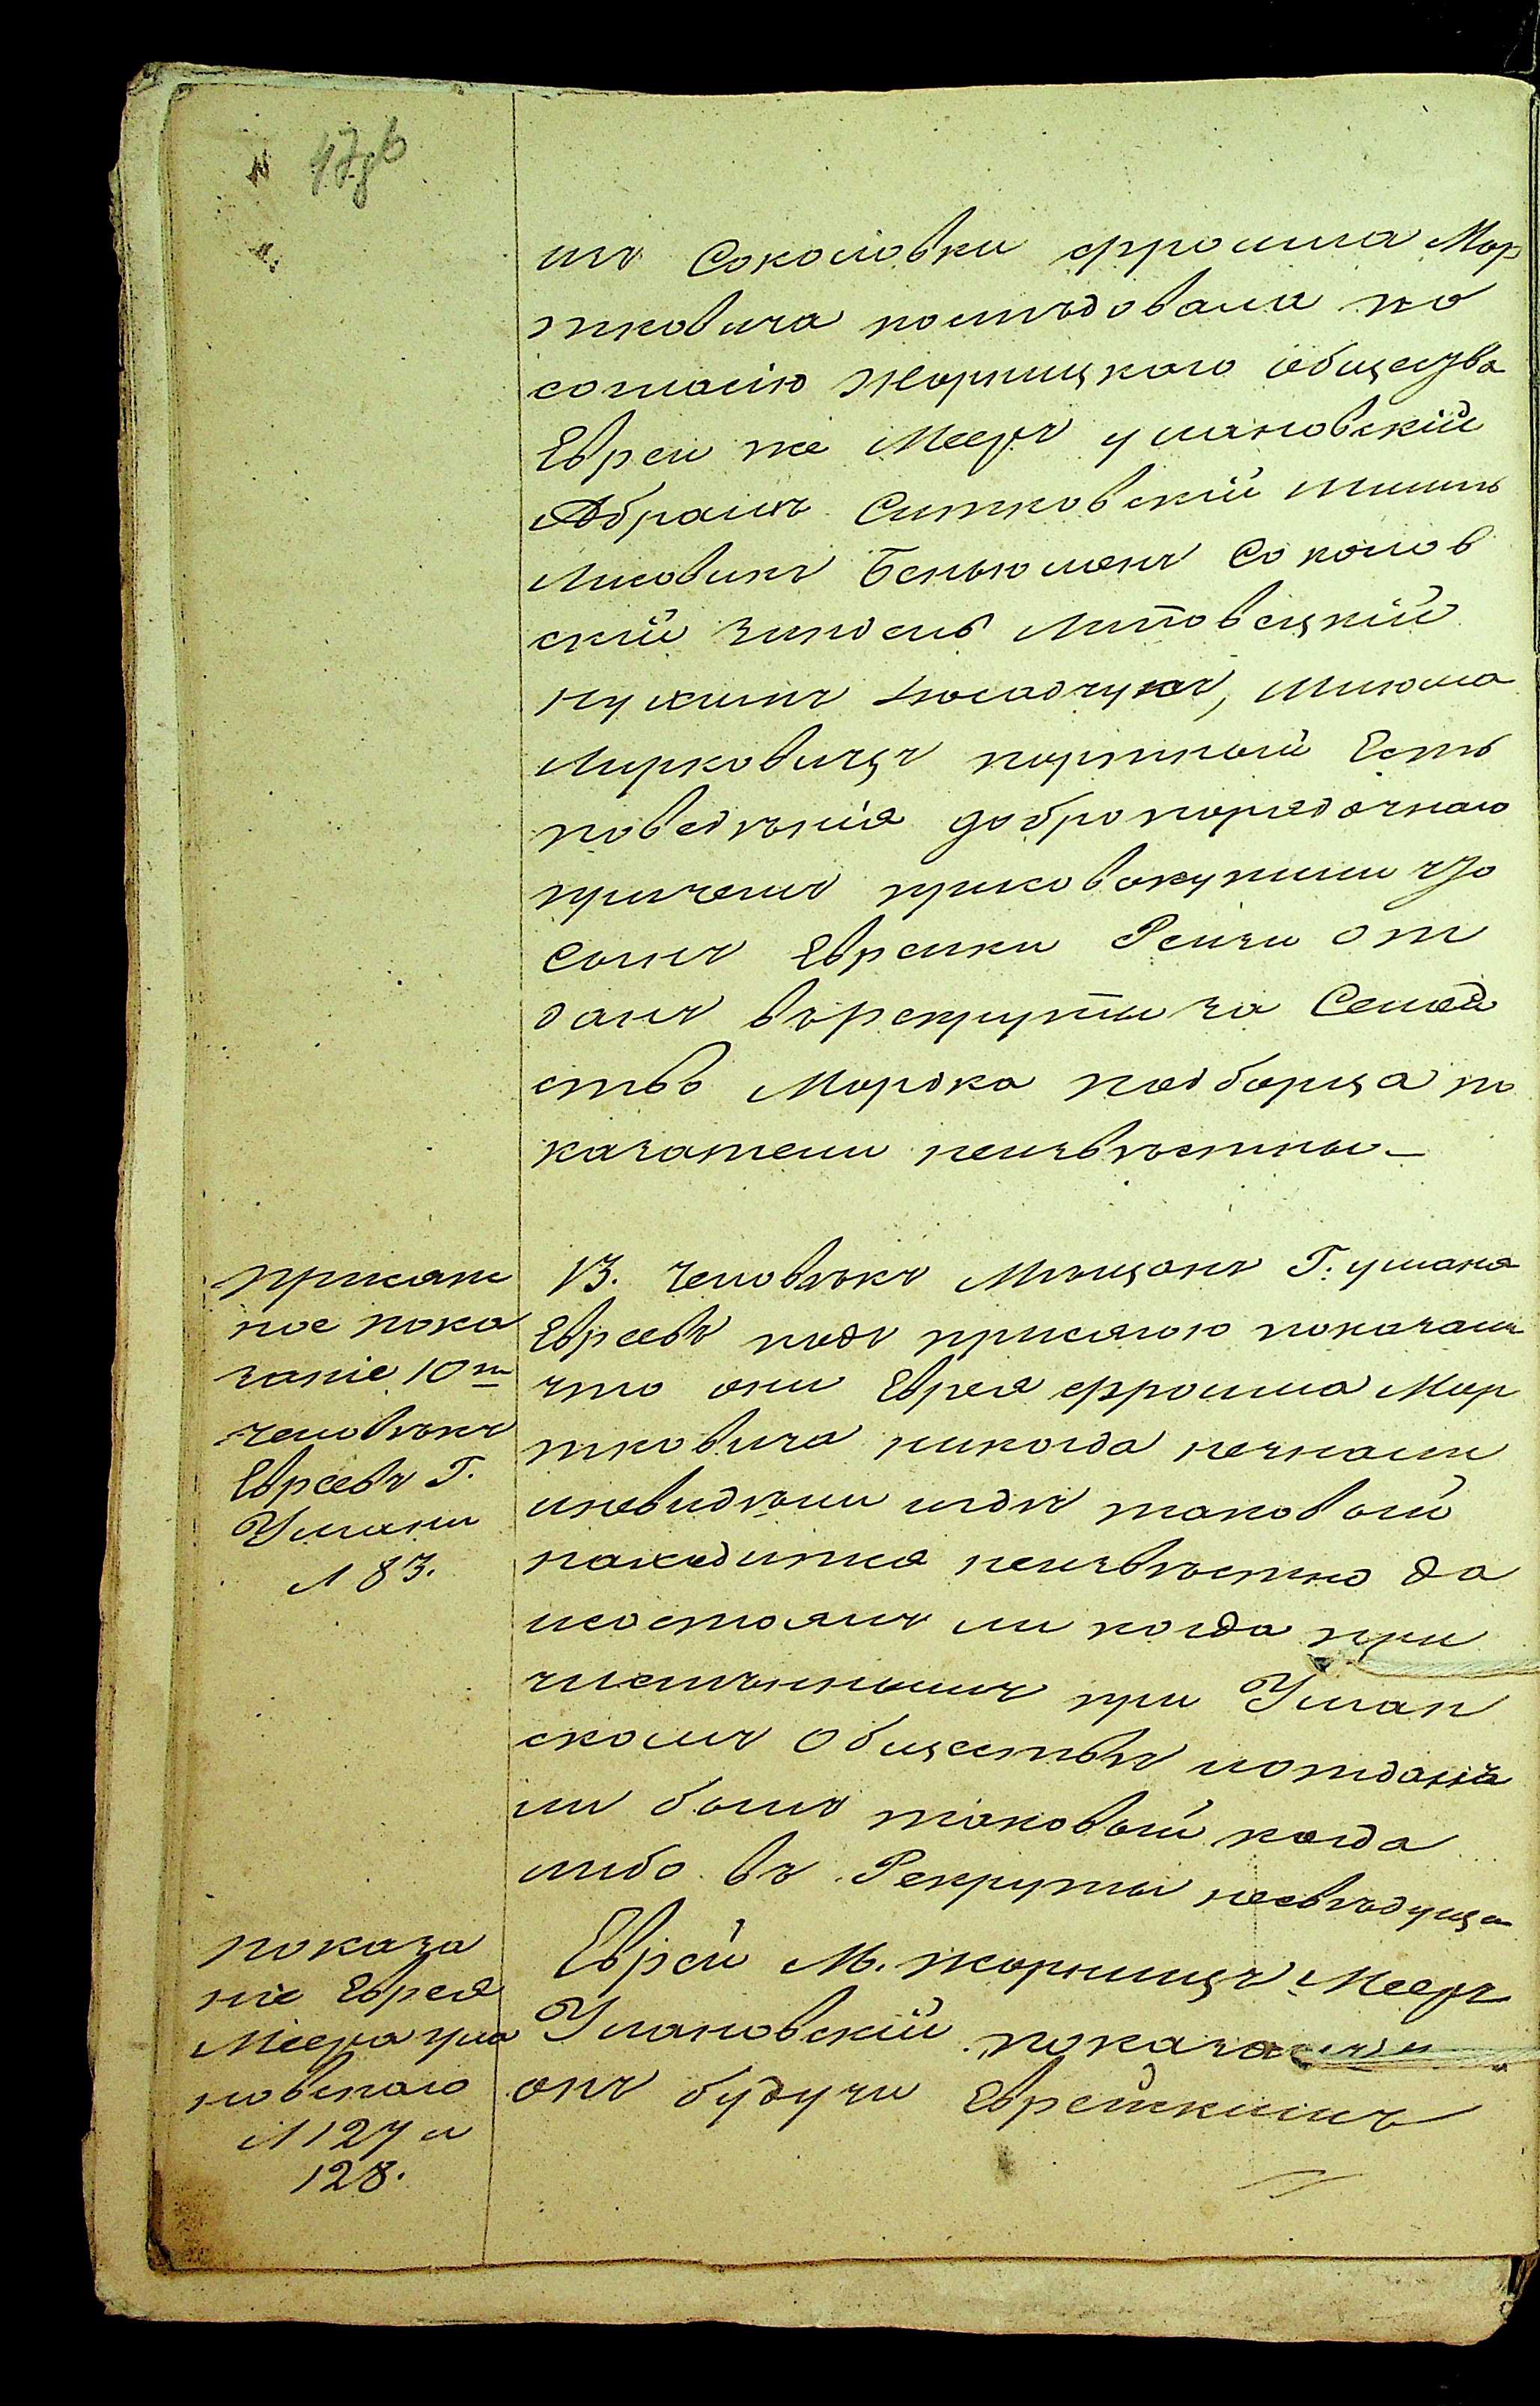 47 об
изъ Соколовки Фроима Мор
тковича последовала по
согласію Жорницкого общества
Евреи же Мееръ Умановскій
Абрамъ Ситковскій Шмиль
Лисовикъ Беньюменъ Соколов
скій Зиндель Липовецкій
Нухимъ Посадчукъ, Шиома
Мирковичъ портный Есть
поведенія добропорядочнаго
причемъ присовокупили что
Сынъ Еврейки Рейзи от
данъ въ рекруты за Семей
ство Мордка подборца по
казатели неизвѣстны
присяж
ное пока
заніе 10ти
человѣкъ
Евреевъ Г.
Умани
л 83.
13. Человѣкъ Мѣщанъ Г. Умана
Евреевъ подъ присягою показали
что они Еврея Фроима Мор
тковича никогда незнали
иневидѣли игдѣ таковый
находится неизвѣстно да
исостоялъ ли когда при
численнымъ при Уман
скомъ Обществѣ иотданъ
ли былъ таковый когда
либо въ Рекруты несвѣдущи
показа
ніе Еврея
Меера Ума
новскаго
л 127 и
128.
Еврей М. Жорнищъ Мееръ
Умановскій показалъ
онъ будучи Еврейскимъ